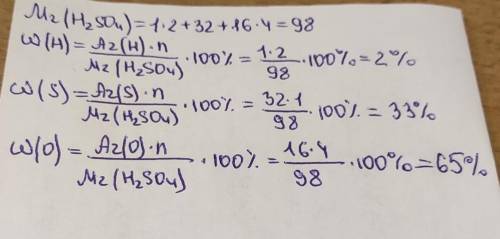 Mr(H₂SO₄)=1·2+32+16·4=98
ω(H)=Ar(H)·n/Mr(H₂SO₄)·100%=1·2/98·100%=2%
ω(S)=Ar(S)·n/Mr(H₂SO₄)·100%=32·1/98·100%=33%
ω(O)=Ar(O)·n/Mr(H₂SO₄)·100%=16·4/98·100%=65%